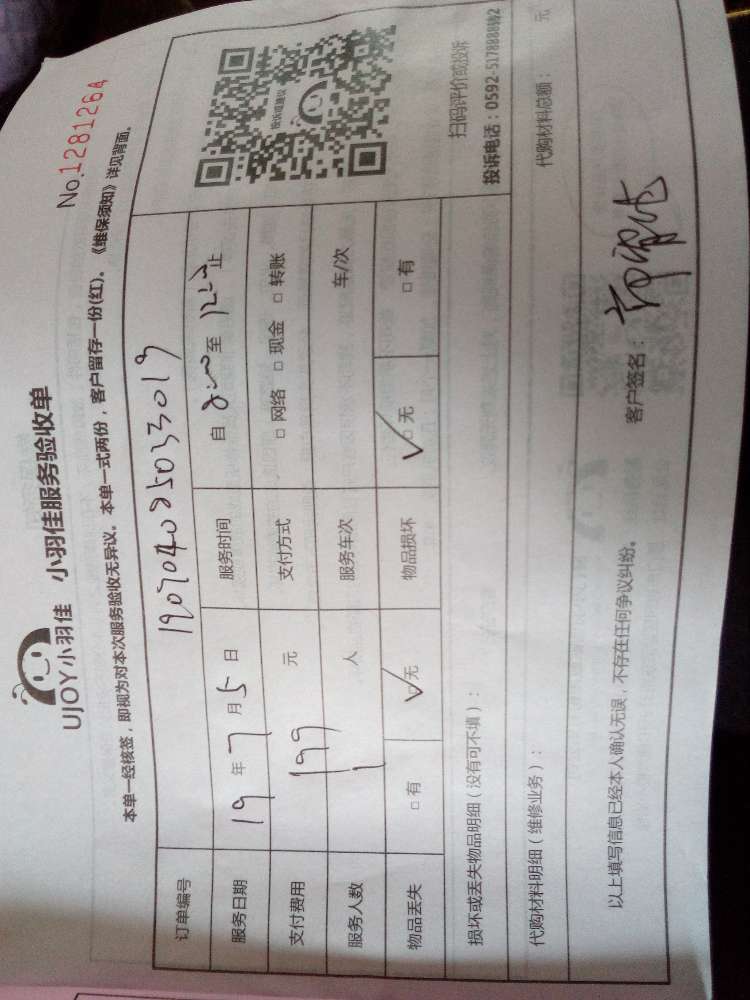 UJOY小羽佳 小羽佳服务验收单
No.1281264
本单一经核签，即视为对本次服务验收无异议。本单一式两份，客户留存一份(红)。《维保须知》详见背面。
订单编号
服务日期 19 年 7 月 5 日 服务时间 自 至 止
支付费用 199 元 支付方式 □ 网络 □ 现金 □ 转账
服务人数 1 人 服务车次 车/次
物品丢失 □ 有 □ 无 物品损坏 □ 无 □ 有
投诉或建议
扫码评价或投诉
投诉电话：0592-5178888转2
损坏或丢失物品明细（没有可不填）：
代购材料明细（维修业务）： 代购材料总额： 元
以上填写信息已经本人确认无误，不存在任何争议纠纷。 客户签名：